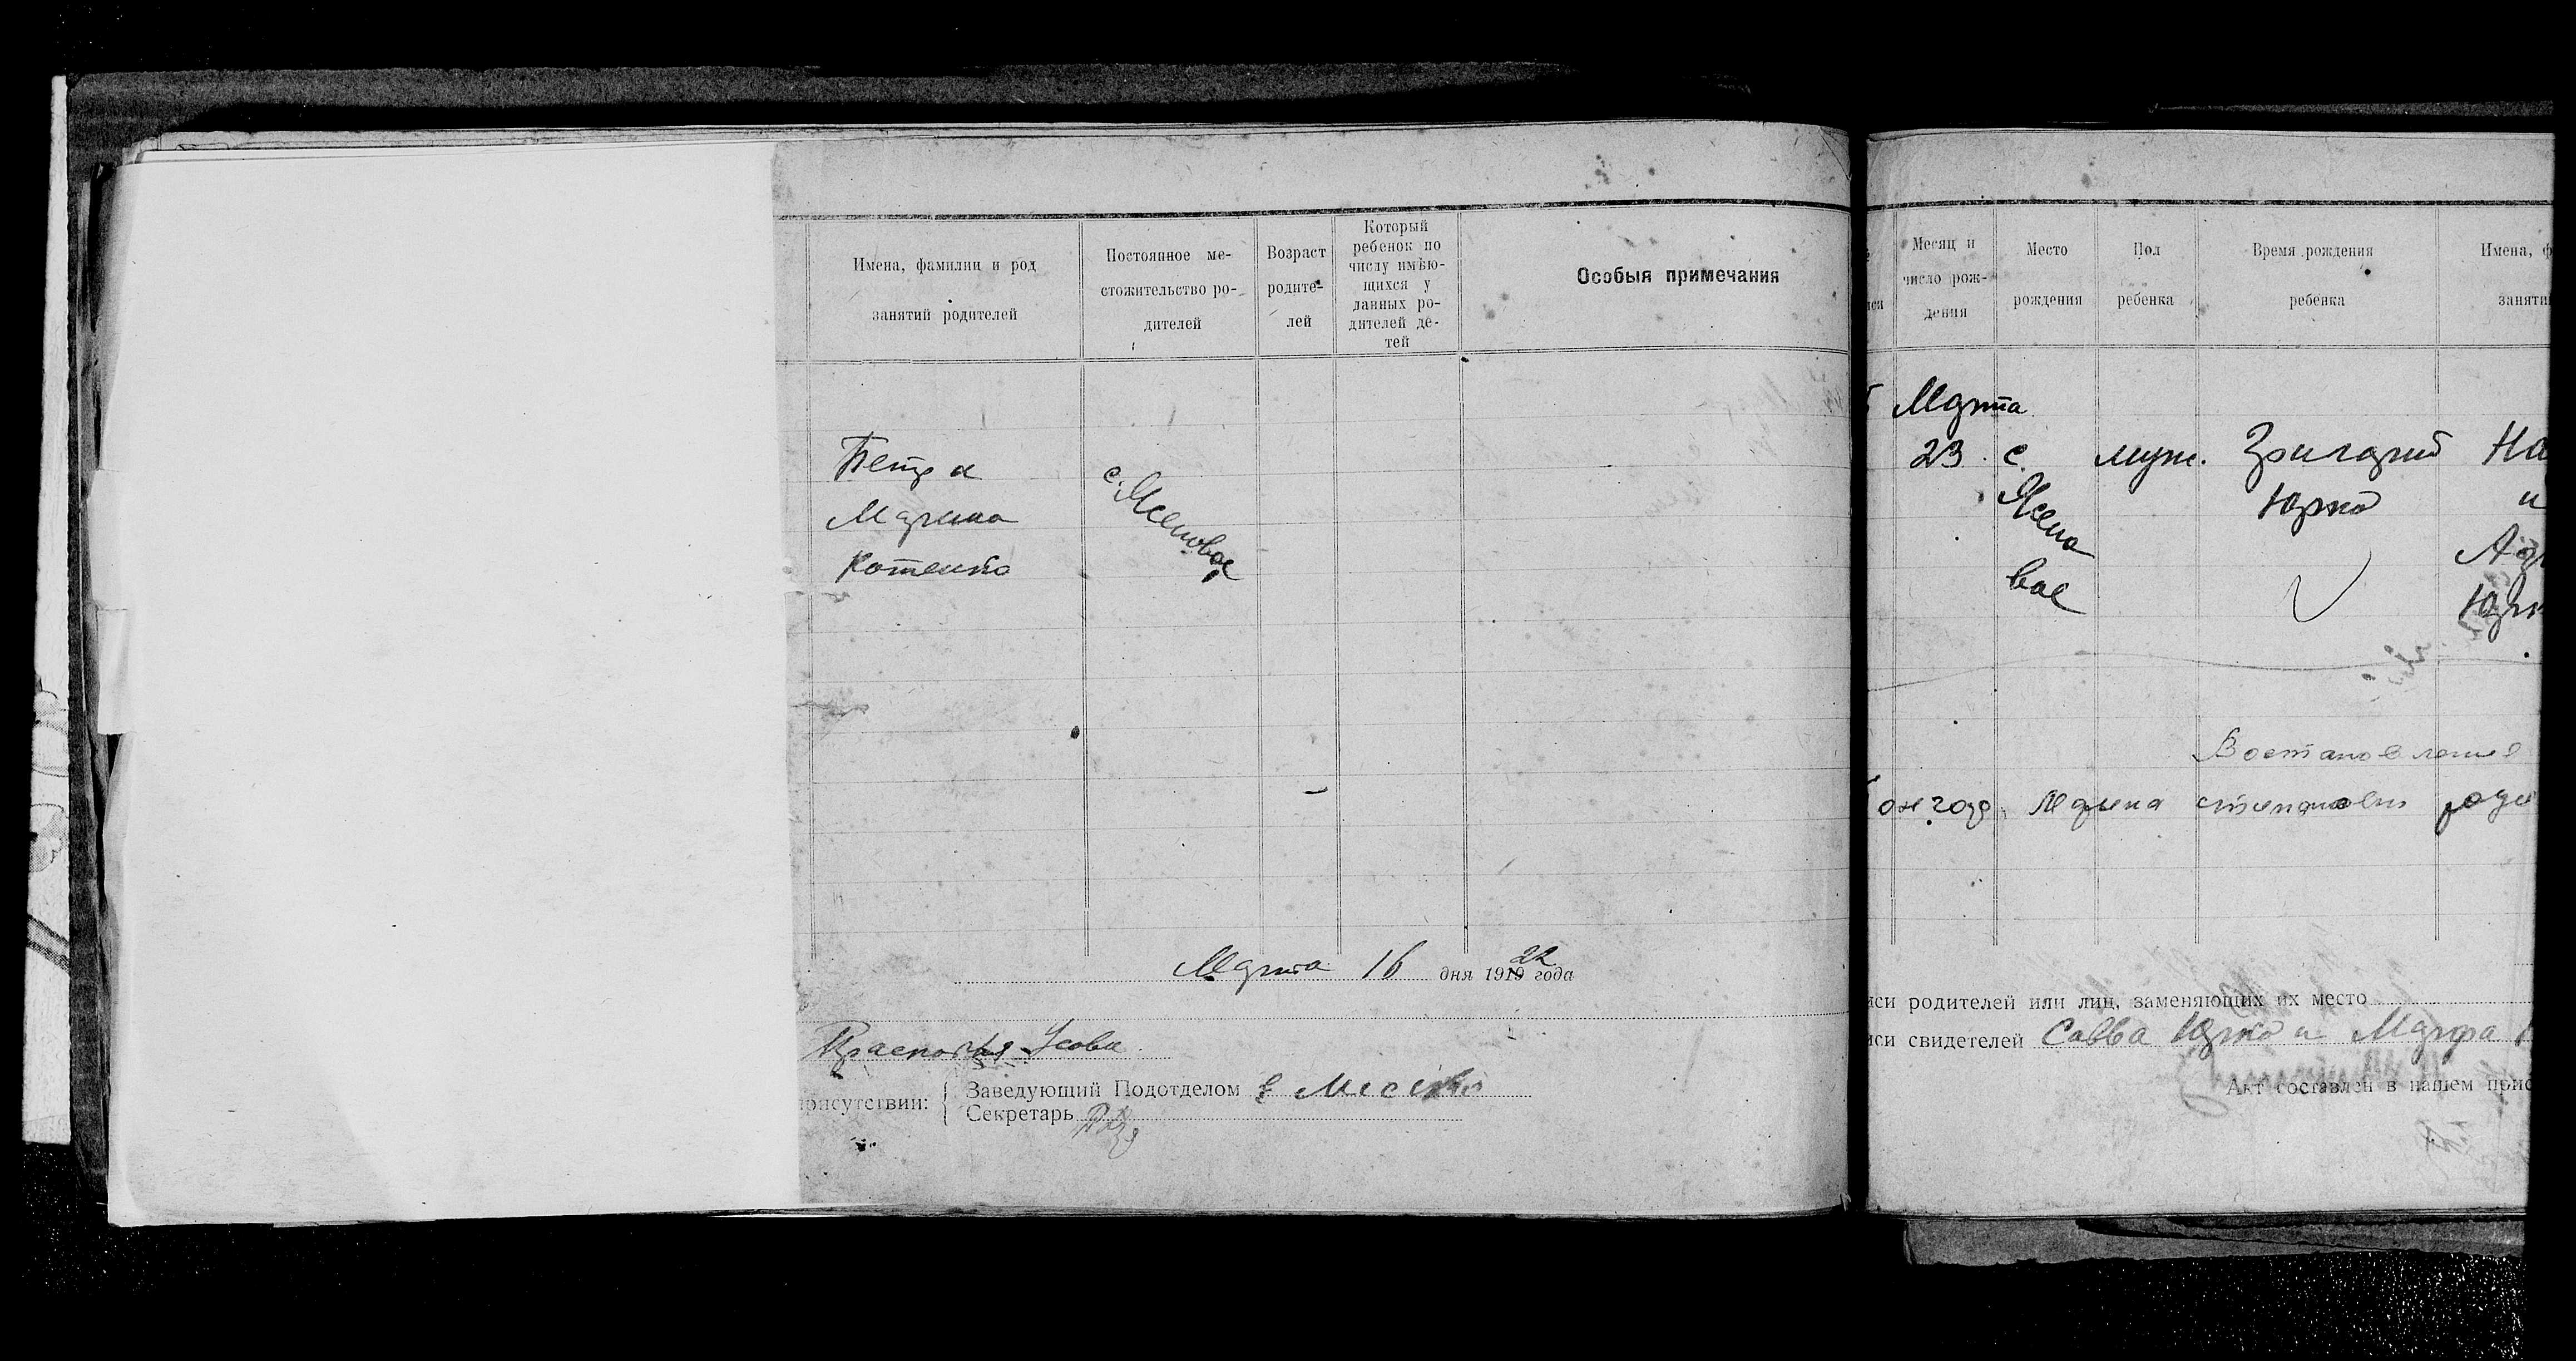 Имена, фамилии и род
занятий родителей
Постоянное ме-
стожительство ро-
дителей
Возраст
родите-
лей
Который
ребенок по
числу имѣю-
щихся у
данных ро-
дителей де-
тей
Особыя примечания
Петр и
Марина
Котенко
с. Ясеновое
Марта 16 дня 1919 22 года
Усова
присутствии:
Заведующий Подотделом
Секретарь
Месяц и
число рож-
дения
Место
рождения
Пол
ребенка
Время рождения
ребенка
Имена, ф
заняти
Марта
23 с. муж. Григорий На
Ясено Юрко и
вое
Юрк
Востановление
года Марина степановн роди
иси родителей или лиц, заменяющих их место
иси свидетелей Савва Юрко и Марфа
Акт составлен в нашем прис